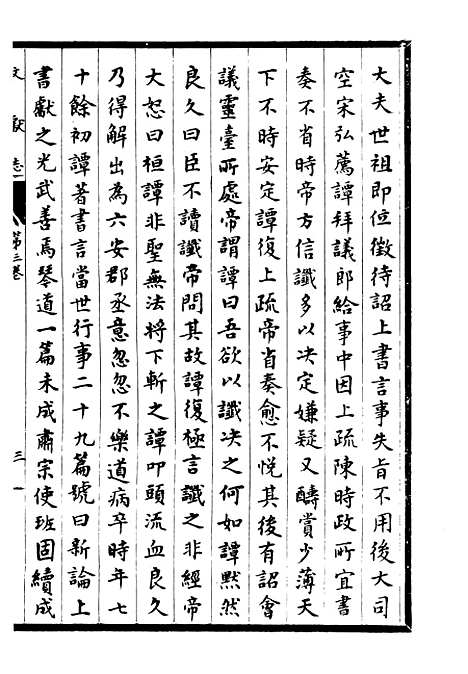 大夫世祖即位徵待詔上書言事失旨不用後大司
空宋弘薦譚拜議郎給事中因上疏陳時政所宜書
奏不省時帝方信讖多以决定嫌疑又醻賞少薄天
下不時安定譚復上疏帝省奏愈不悅其後有詔會
議靈臺所處帝謂譚曰吾欲以讖决之何如譚黙然
良久曰臣不讀讖帝問其故譚復極言讖之非經帝
大怒曰桓譚非聖無法將下斬之譚叩頭流血良久
乃得解出為六安郡丞意忽忽不樂道病卒時年七
十餘初譚著書言當世行事二十九篇號曰新論上
書獻之光武善焉琴道一篇未成肅宗使班固續成
文獻志 第三卷 三一